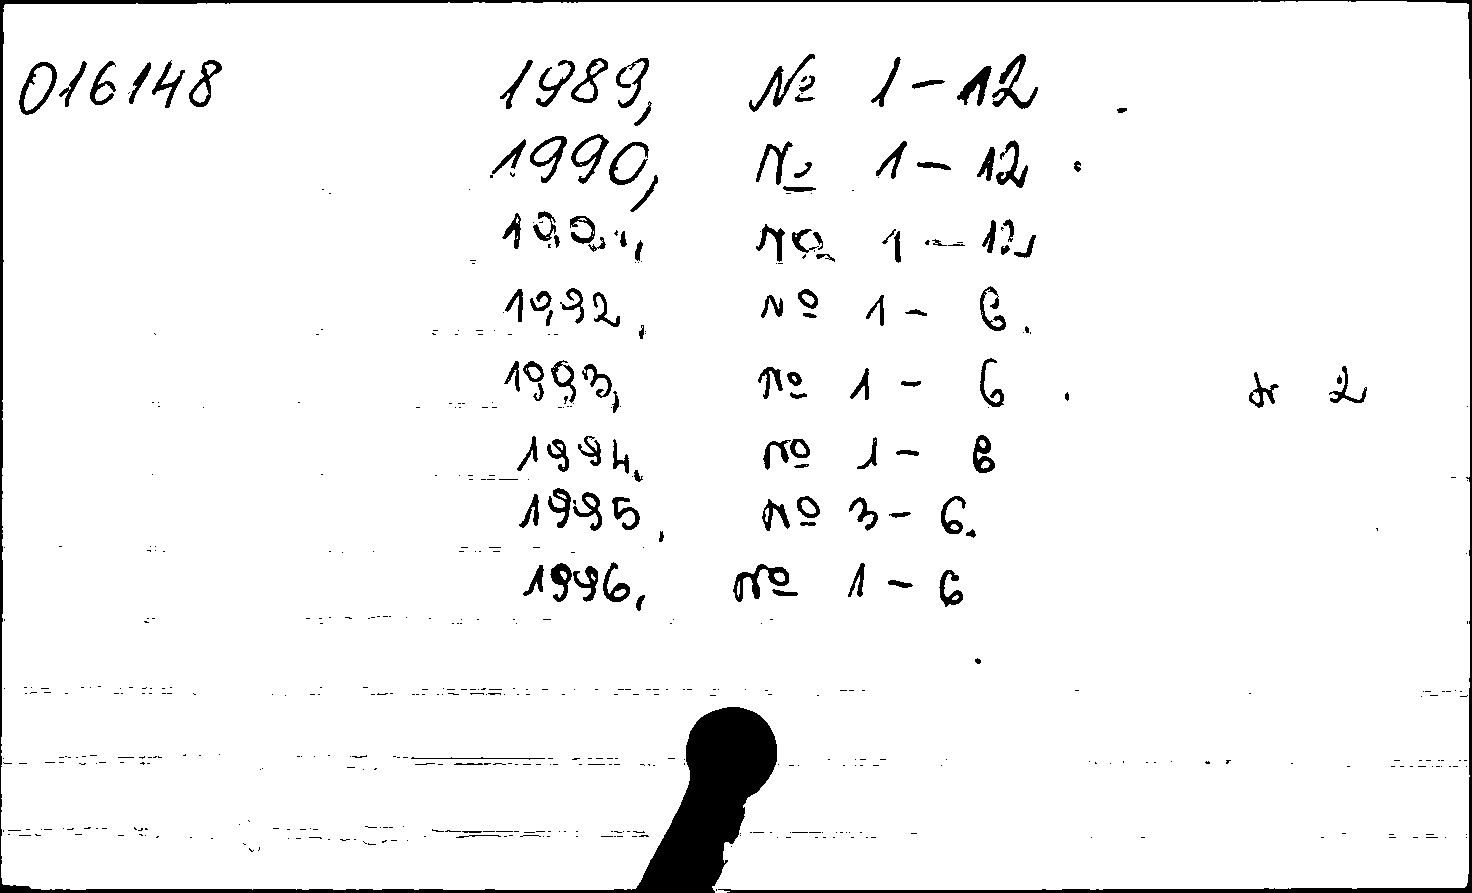 016148 1989, № 1-12
1990, № 1-12
№ 1-12
1992, № 1-6.
1993, № 1-6. 2
1994, № 1-6
1995, № 3-6.
1996, № 1-6